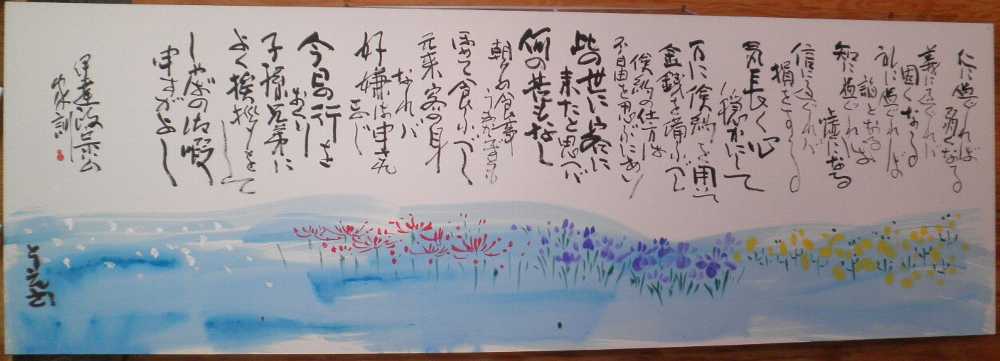 仁に過ぐれば
弱くなる
義に過ぐれば
固くなる
礼に過ぐれば
諂となる
智に過ぐれば
嘘になる
信に過ぐれば
損をする
気長く心
穏かにして
万に倹約を用て
金銭を備ふべし
倹約の仕方は
不自由を忍ぶにあり
此の世に客に
来たと思へば
何の苦もなし
朝夕の食事
うまからずとも
ほめて食ふべし
元来客の身
なれば
好嫌は申され
まじ
今日の行を
おくり
子孫兄弟に
よく挨拶をして
しゃばの御暇
申すがよし
伊達政宗公
家訓